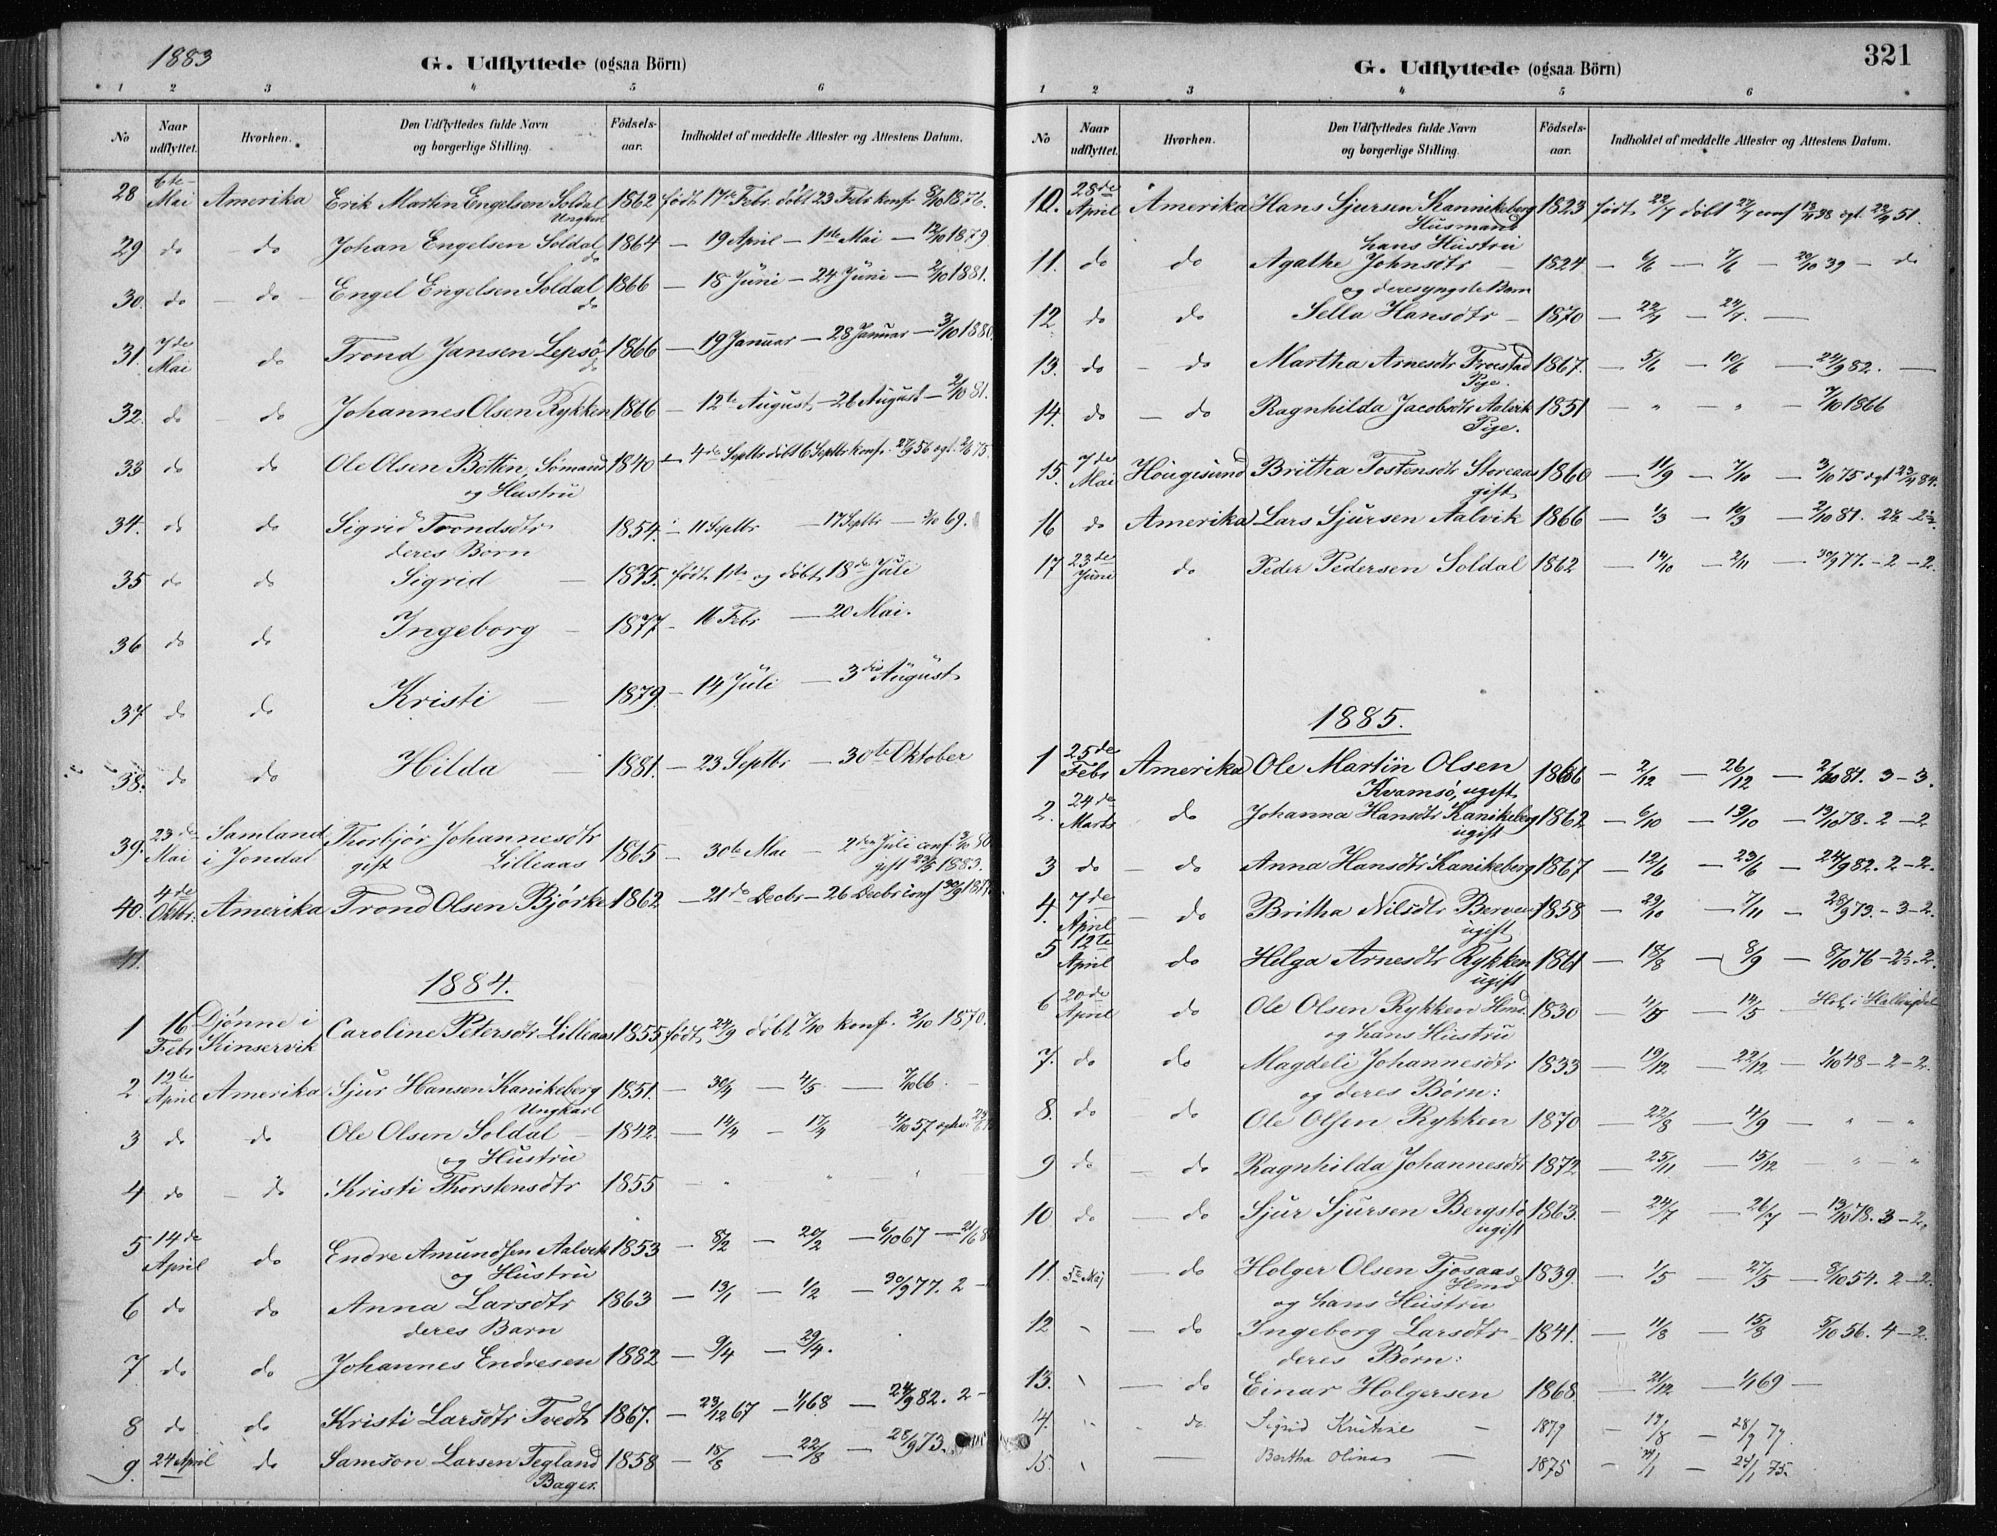 1883
G. Udflyttede (ogsaa Börn)
1 2 3 4 5 6
No Naar udflyttet. Hvorhen. Den Udflyttedes fulde Navn og borgerlige Stilling. Födselsaar. Indholdet af meddelte Attester og Attestens Datum.
28 6te Mai Amerika Erik Martin Engelsen Soldal Ungkarl 1862 født 17de Febr. döbt 23 Febr konf 8/10 1876.
29 do do Johan Engelsen Soldal do 1864 — 19 April — 1ste Mai — 12/10 1879
30. do — do — Engel Engelsen Soldal do 1866 — 18 Juni — 24 Juni — 2/10 1881.
31. 7de Mai do Trond Jansen Lepsø do 1866 — 19 Januar — 28 Januar — 3/10 1880
32. do do Johannes Olsen Rykken 1866 — 12te August — 26 August — 2/10 81.
33 do do Ole Olsen Botten, Sömand 1840 — 4de Septbr döbt 6 Septbr konf. 27/9 56
og Hustru
34. do do Sigrid Trondsdtr 1854. — 11 Septbr — 17 Septbr — 3/10 69.
deres Born
35 do do Sigrid — 1875. født 1ste og döbt 18de Juli
36 do do Ingeborg — 1877 — 16 Febr — 20 Mai.
37 do do Kristi — 1879 — 14 Juli — 3die August
38. do do Hilda — 1881. — 23 Septbr — 30te Oktober
39. 23de Mai Samland i Jondal Thorbjör Johannesdtr gift Lilleaas 1865 — 30te Mai — 2den Juli conf 3/10 80 gift 1883.
40. 4de Oktbr. Amerika Trond Olsen Bjørke 1862 — 21de Decbr — 26 Decbr conf 30/9 1877
41.
1884.
1 16 Febr Djönne i Kinservik Caroline Petersdtr Lilleaas 1855 født 24/9 döbt 7/10 konf. 2/10 1870.
2 12te April Amerika Sjur Hansen Kanikeberg Ungkarl 1851. — 30/4 — 4/5 — 7/10 66.
3 do do Ole Olsen Soldal — 1842. — 14/4 — 17/4 4/10 57
og Hustru
4 do — do Kristi Thorstensdtr 1855 — "
5 14de April do Endre Amundsen Aalvik 1853 — 8/2 — 20/2 — 6/10 67 — 21/6 8
og Hustru
6 do do Anna Larsdtr 1863 — 13/1 — 1/2 — 30/9 77. 2 —
deres Barn
7 do do Johannes Endresen 1882 — 9/4 — 29/4.
8 do do Kristi Larsdtr Tvedt 1867. — 23/12 67 — 1/1 68 — 24/9 82. 2 —
9. 24 April do Samson Larsen Tegland Bager. 1858 — 18/8 — 22/8 — 28/9 73.
321
G. Udflyttede (ogsaa Börn)
1 2 3 4 5 6
No Naar udflyttet. Hvorhen. Den Udflyttedes fulde Navn og borgerlige Stilling. Födselsaar. Indholdet af meddelte Attester og Attestens Datum.
10. 28de April Amerika Hans Sjursen Kannikeberg Husmand 1823 født 22/7 döbt 27/7 conf 51.
hans Hustru
11. do do Agathe Johnsdtr — 1824. — 6/6 — 7/6 — 20/10 39 — do
og deres yngste Barn
12 do do Sella Hansdtr — 1870 — 22/1 — 24/1. —
13. do — do Martha Arnesdtr Froestad Pige. 1867. — 5/6 — 10/6 — 24/9 82. —
14. do — do Ragnhilda Jacobsdtr Aalvik Pige. 1851 — " — " — 7/10 1866
15. 7de Mai Hougesund Britha Tostensdtr Storeaas gift 1860 — 11/9 — 7/10 — 3/10 75 84.
16 do Amerika Lars Sjursen Aalvik 1866 — 1/3 — 10/3 — 2/10 81.
17 23de Juni do Peder Pedersen Soldal 1862 — 14/10 — 2/11 — 30/9 77. — 2 — 2.
1885.
1 25de Febr Amerika Ole Martin Olsen Kvamsø, ugift 1866 — 2/12 — 26/12 — 2/10 81. 3 — 3.
2. 24de Marts do Johanna Hansdtr Kanikeberg ugift 1862 — 6/10 — 19/10 — 13/10 78. 2 — 2
3 do — do Anna Hansdtr Kanikeberg 1867 — 12/6 — 23/6 — 24/9 82. 2 — 2.
4. 7de April — do Britha Nilsdtr Berven ugift 1858 — 29/10 — 7/11 — 28/9 73. — 3 — 2.
5 12te April do Helga Arnesdtr Rykken ugift 1861 — 18/8 — 8/9 — 8/10 76 — 2½ — 2.
6 20de April do Ole Olsen Rykken Hmd. 1830 — — 14/5 —
og hans Hustru
7. do do Magdeli Johannesdtr 1833 — 19/12 — 22/12 — 1/10 48 — 2 — 2.
og deres Børn:
8. do — do Ole Olsen Rykken 1870 — 22/8 — 4/9 — " — "
9 do — do Ragnhilda Johannesdtr 1872 — 25/11 — 15/12 " — "
10 do — do Sjur Sjursen Bergstø ugift 1863. — 24/7 — 26/7 — 13/10 78. 3 — 2.
11. 5te Maj — do Holger Olsen Tjosaas Hmd 1839. — 1/5 — 27/5 — 8/10 54. 2 — 2.
og hans Hustru
12 " — do Ingeborg Larsdtr 1841. — 11/8 — 15/8 5/10 56. 4 — 2.
deres Børn:
13. " — do Einar Holgersen 1868. — 21/12 — 1/1 69 —
14. " — do Sigrid Kristine — 1879 — 19/8 — 28/9 79.
15. " — Bertha Olina — 1875 — — 24/1 75.